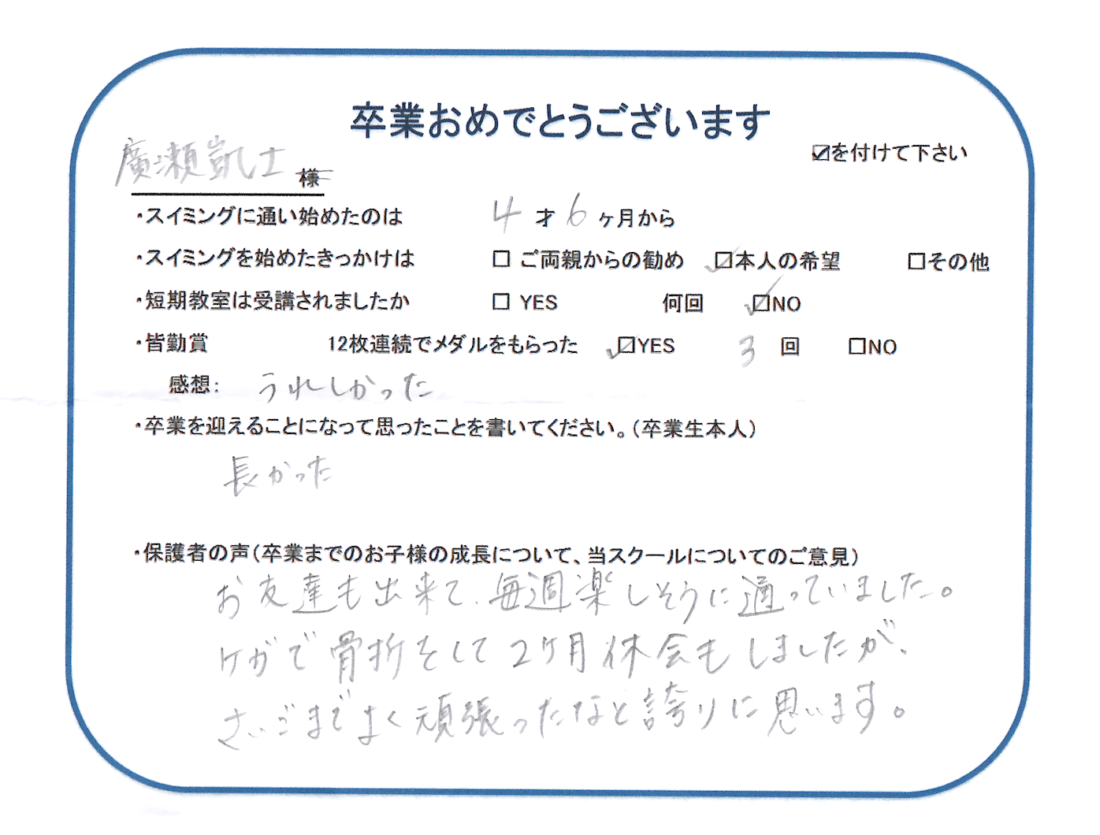 卒業おめでとうございます
廣瀬凱士 様
☑を付けて下さい
・スイミングに通い始めたのは 4 才 6 ヶ月から
・スイミングを始めたきっかけは □ ご両親からの勧め ☑本人の希望 □その他
・短期教室は受講されましたか □ YES 何回 ☑NO
・皆勤賞 12枚連続でメダルをもらった ☑YES 3 回 □NO
感想: うれしかった
・卒業を迎えることになって思ったことを書いてください。(卒業生本人)
長かった
・保護者の声(卒業までのお子様の成長について、当スクールについてのご意見)
お友達も出来て、毎週楽しそうに通っていました。
ケガで骨折をして2ヶ月休会もしましたが、
さいごまでよく頑張ったなと誇りに思います。